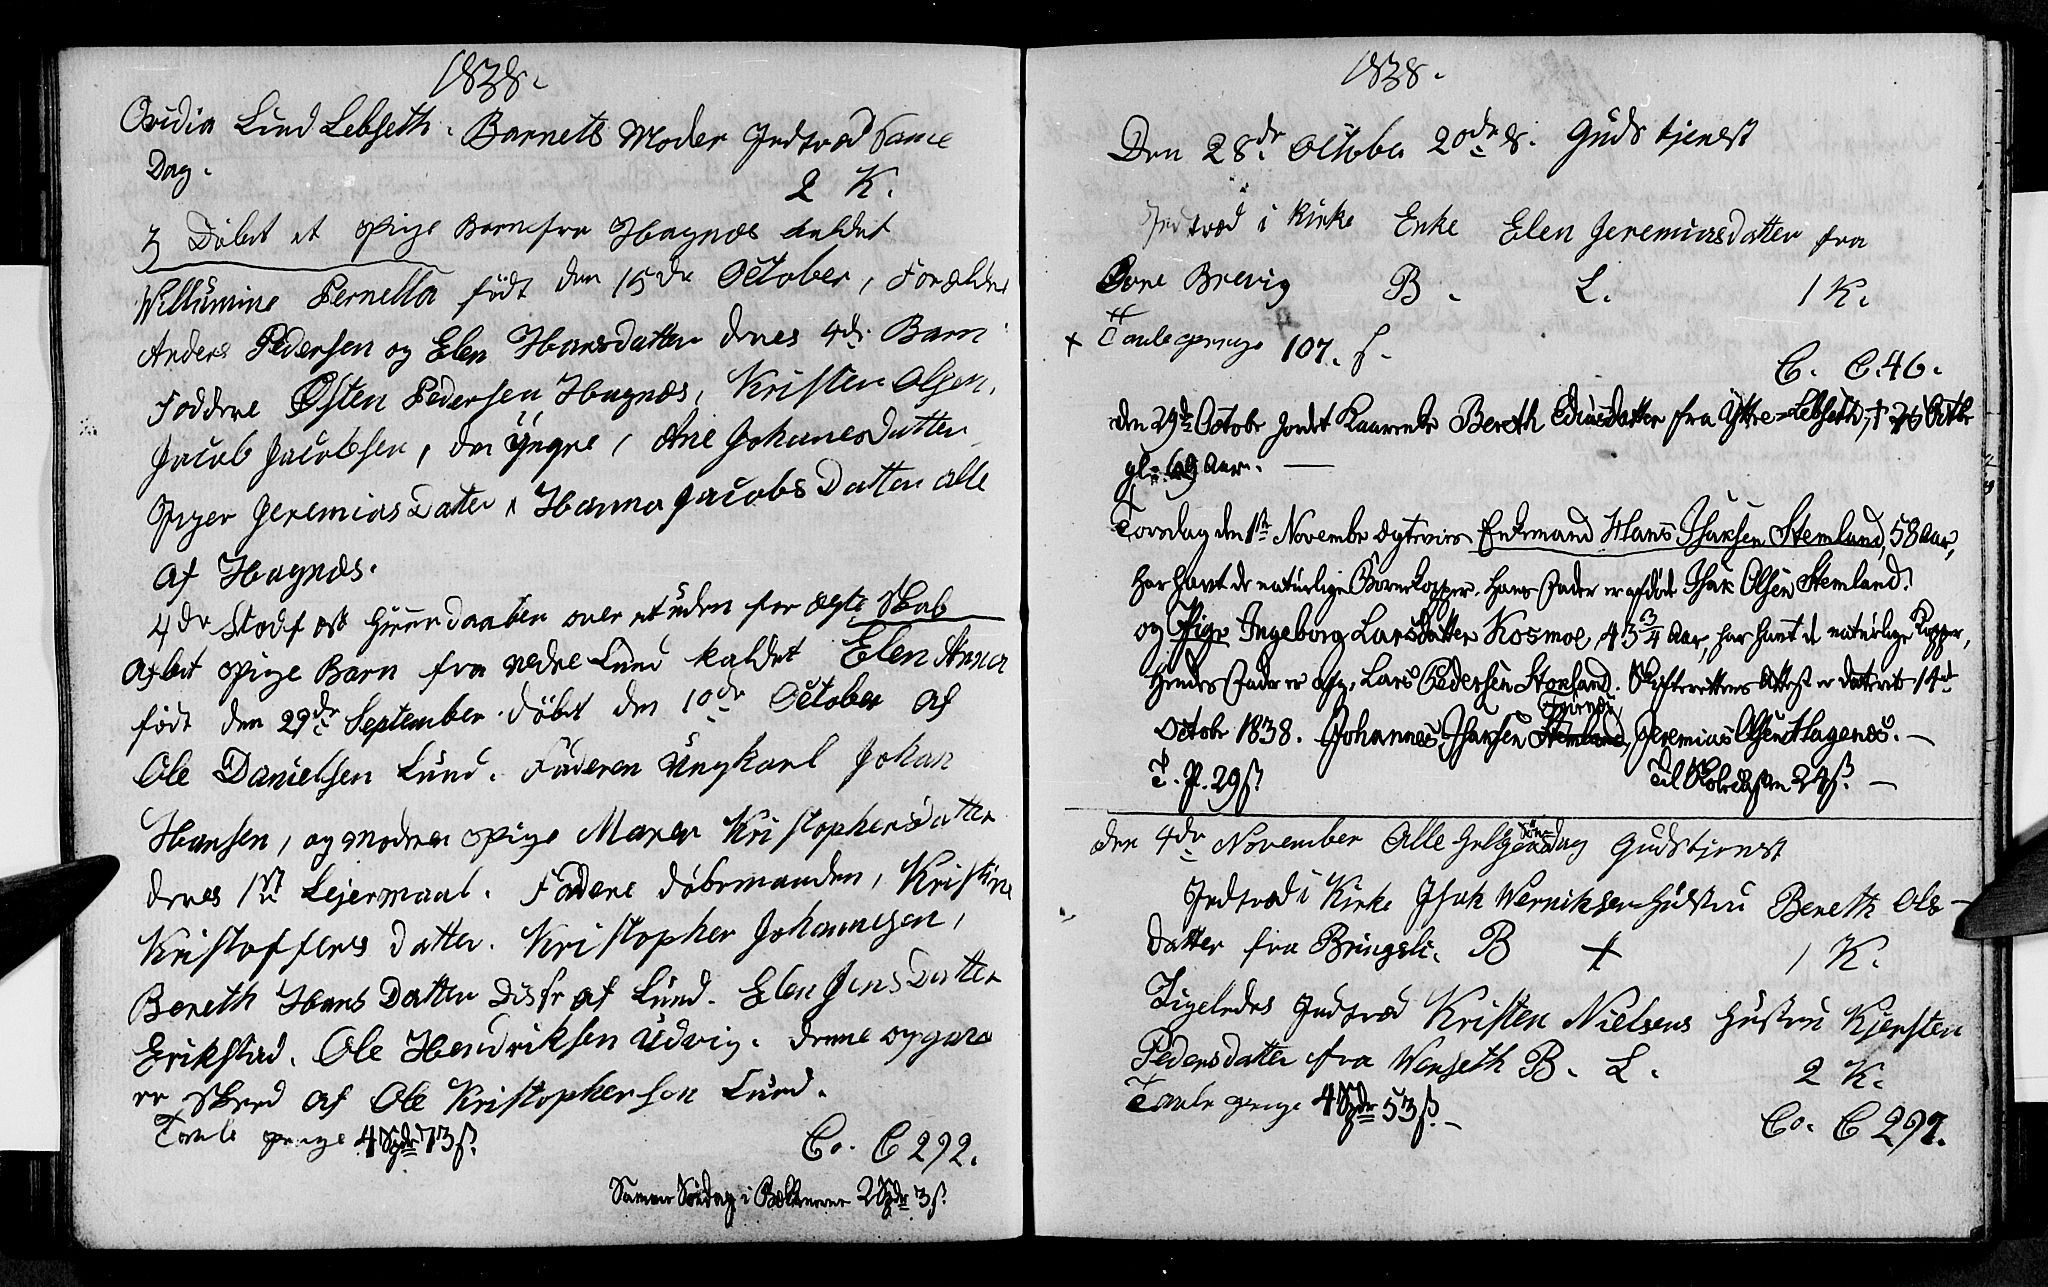 1838.
Ovidia Lind Lebseth. Barnets Moder Indtræd Same
Dag.
2 K.
3 Döbet et Pige Barn fra Hagnæs kaldet
Willumine Pernella födt den 15de October, Forælder
Anders Pedersen og Elen Hansdatter deres 4de Barn
Faddere Østen Pedersen Hagnæs, Kristen Olsen,
Jacob Jacobsen, den Yngre, Ane Johanesdatter
Piger Jeremias Datter, Hanna Jacobs Datter alle
af Hagnæs.
4de Stadfæst Hiemdaaben over et uden for Ægte Skab
Aflet Pige Barn fra Nedre Lund kaldet Elen Anna
födt den 29de September. döbet den 10de October af
Ole Danielsen Lund. Faderen Ungkarl Johan
Hansen, og Moderen Pige Maren Kristophersdatter
deres 1ste Lejermaal. Faddere Döbemanden, Kristine
Kristoffers datter. Kristopher Johannesen,
Bereth Hans Datter disse af Lund. Elen Jens Datter
Erikstad. Ole Hendriksen Udvig. denne opgave
er skeed af Ole Kristophersen Lund.
Tavle penge 4 Spdr 73 ß.
Co. C 292.
Samme Söndag i Bækkenerne 2 Spdr 3 ß.
1838.
Den 28de Octobe 20de S. Guds tjenest
Indtræd i Kirke Enke Elen Jeremiasdatter fra
Övre Brevig B. L. 1 K.
+ Tavle penge 107. ß.
C. C. 46.
den 29de Octobr jordet Kaarenke Bereth Ediasdatter fra Yttre-Lebseth, † 26 Octbr
gl. 69 Aar.
Torsdag den 1ste Novembr ægteviet Enkemand Hans Isaksen Stemland, 58 Aar,
har havt de naturlige Börnekopper. Hans Fader er afdöde Isak Olsen Stemland.
og Pige Ingeborg Larsdatter Kosmoe, 43 3/4 Aar, har havt d naturlige Kopper,
hendes Fader er afg. Lars Pedersen Storland. Skifterettens Attest er dateret 14de
Octobr 1838. Johannes Isaksen Stemland, Jeremias Olsen Hagenæs.
T. P. 29 ß. Til Skolekassen 24 ß.
den 4de November Alle Helgens Dag Gudstjenest
Indtræd i Kirke Isak Werniksen Hustru Bereth Ols
datter fra Bringsli. B + 1 K.
Ligeledes Indtræd Kristen Nielsens Hustru Kjersten
Pedersdatter fra Wenseth B. L. 2 K.
Tavle penge 4 Spdr 53 ß.
Co. C 297.